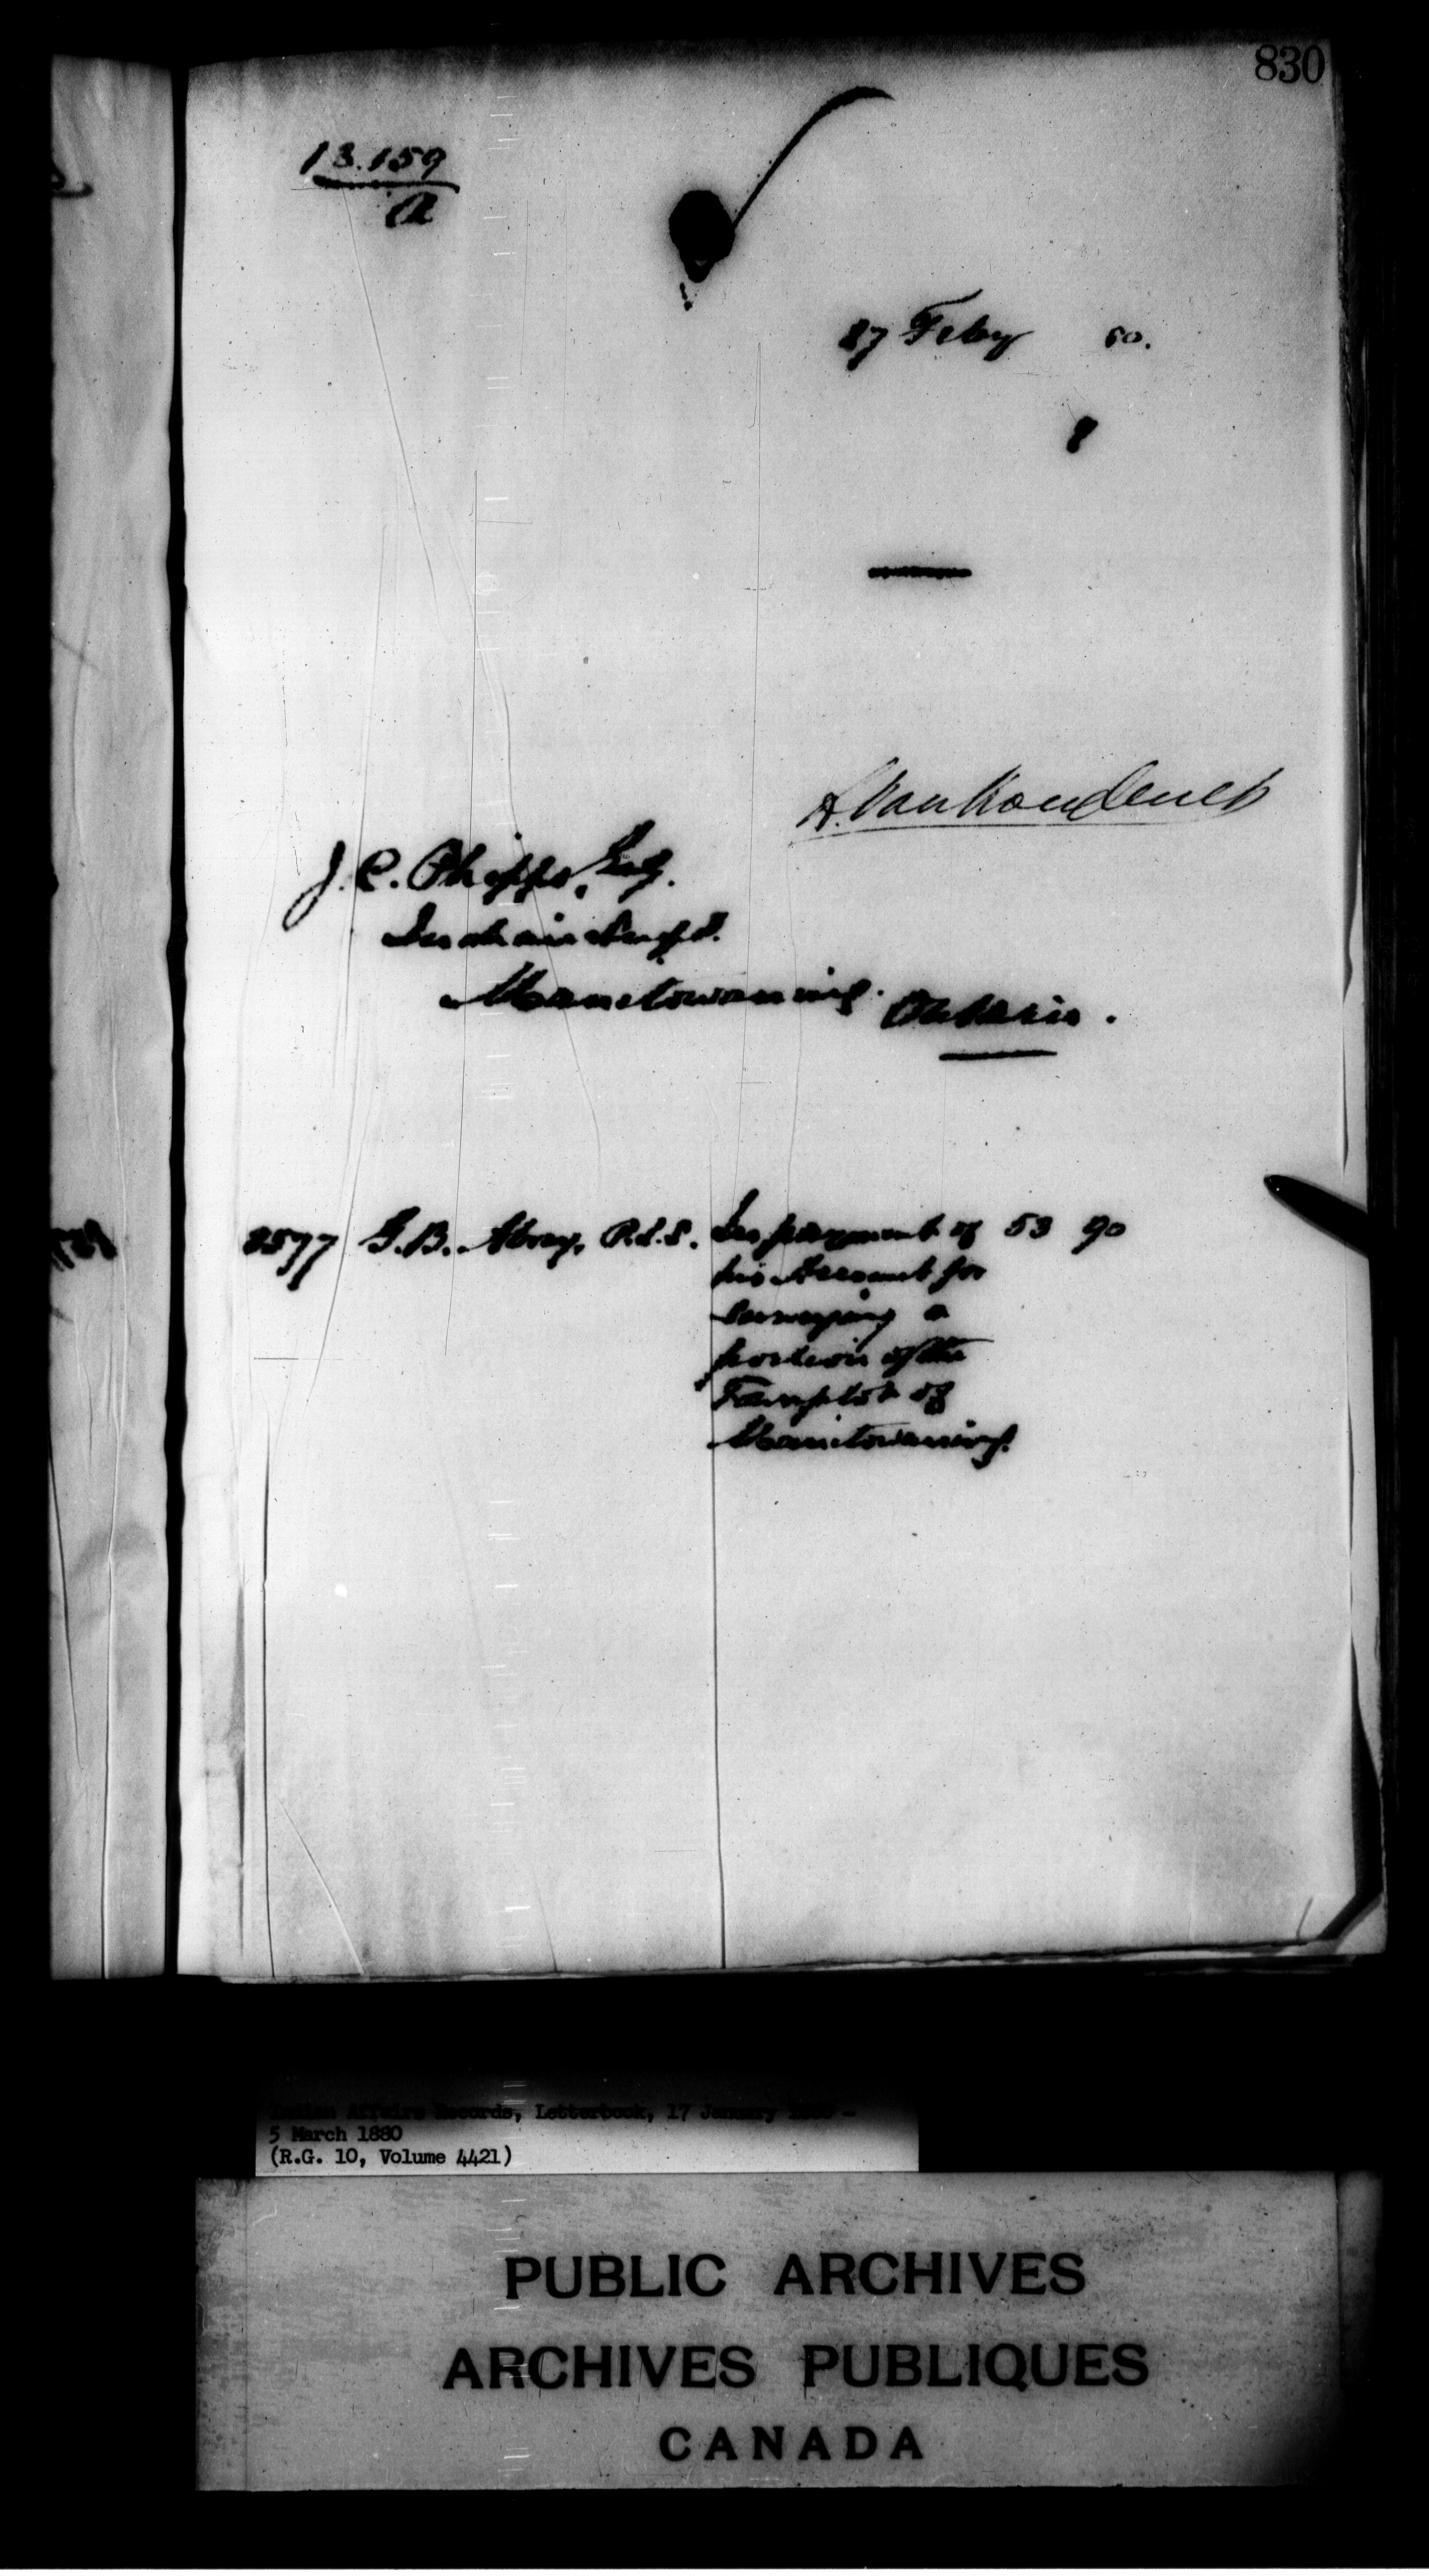 830
13.159
A
27 Feby 80.
8
A. Vankoughnet
J. C. Phipps, Esq.
Indian Supt.
Manitowaning. Ontario.
2577 G.B. Abrey, P.L.S. In payment of 53 90
his Account for
surveying a
portion of the
Townplot of
Manitowaning.
Indian Affairs Records, Letterbook, 17 January 1880 -
5 March 1880
(R.G. 10, Volume 4421)
PUBLIC ARCHIVES
ARCHIVES PUBLIQUES
CANADA